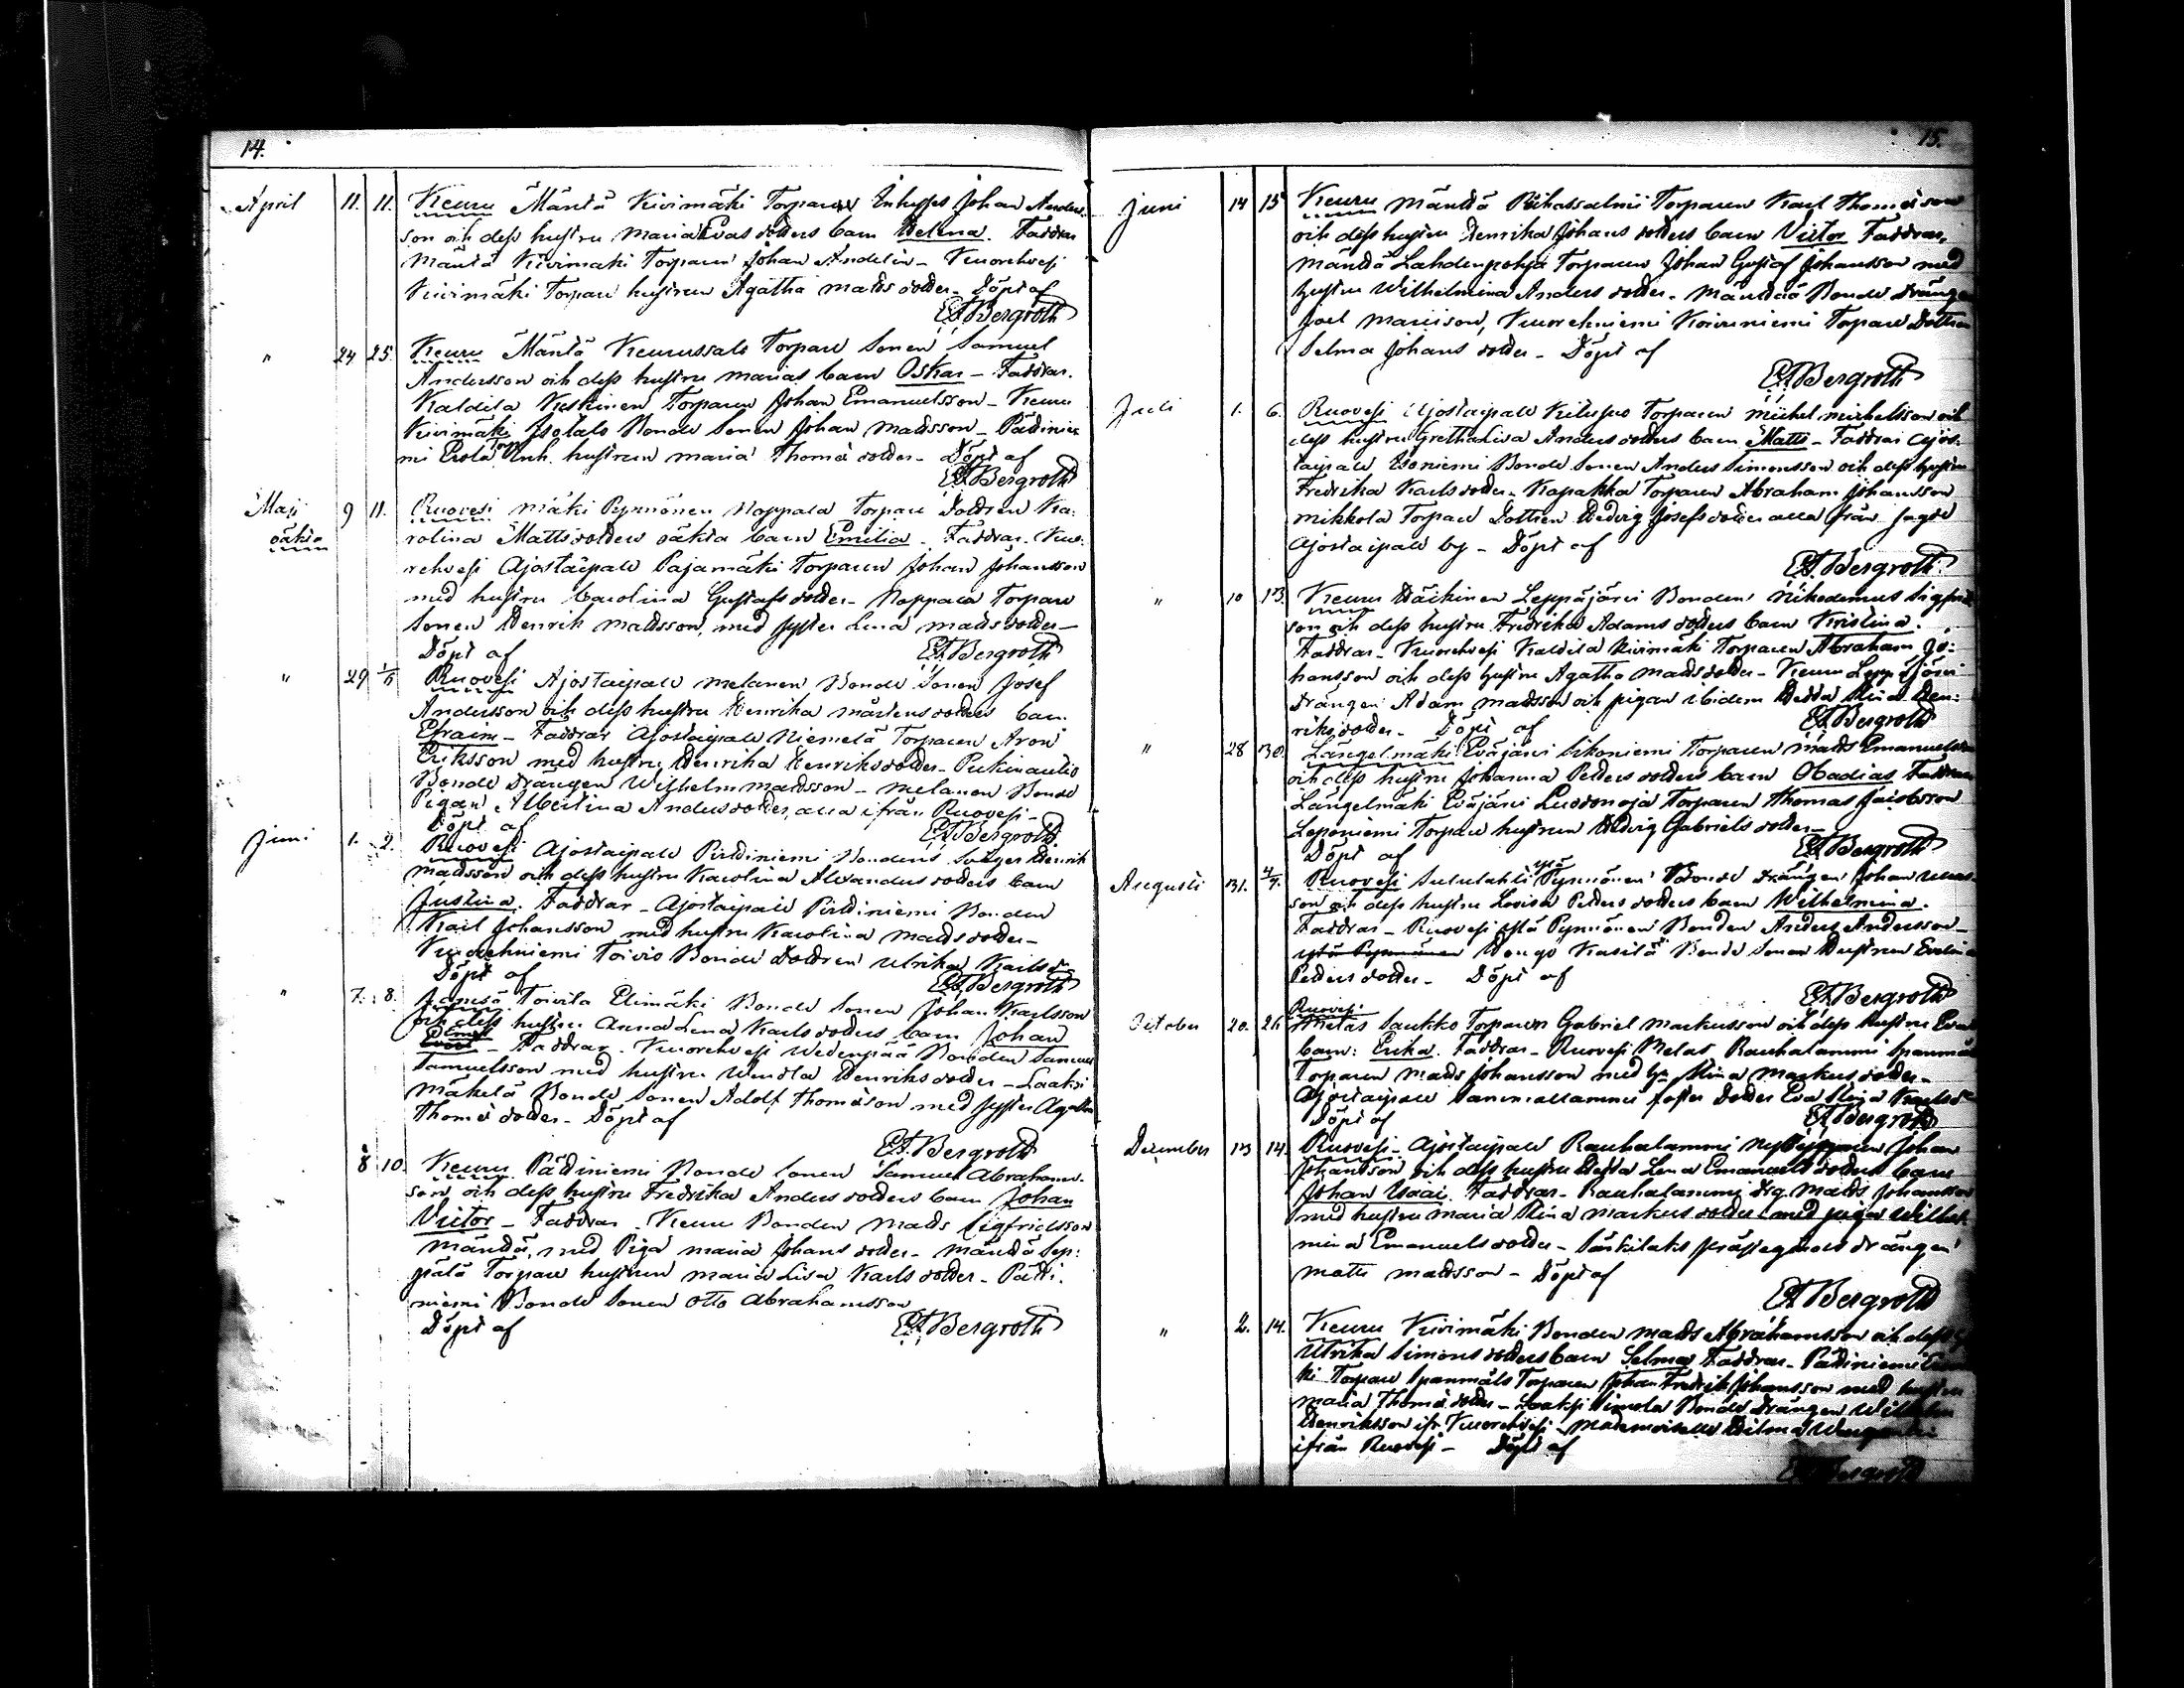 14.
April 11. 11. Keuru Mäntä Kivimäki Torparen Inhyses Johan Anders-
son och dess hustru Maria Evas dotters barn Helena. Faddrar
Mäntä Kivimäki Torparen Johan Andelin - Kuorehvesi
Kivimäki Torpare hustrun Agatha Matts dotter - Döpt af
EA Bergroth
" 24 25. Keuru Mäntä Keurussalo Torpare Sonen Samuel
Andersson och dess hustru Marias barn Oskar - Faddrar.
Kaldila Keskinen Torparen Johan Emanuelsson - Keuru
Kivimäki Isotalo Bonde Sonen Johan Mattsson - Pättinie-
mi Erola Torp Inh. hustrun Maria Thomæ dotter - Döpt af
EA Bergroth
Maji 9 11. Ruovesi Mäki Pynnönen Noppala Torpare Dottren Ka-
oäkta rolina Matts dotters oäkta barn Emilia. Faddrar. Kuo-
rehvesi Ajostaipale Pajamäki Torparen Johan Johansson
med hustru Carolina Gustafs dotter - Noppala Torpare
Sonen Henrik Mattsson, med Syster Lena Matts dotter -
Döpt af EA Bergroth
" 29 1/6 Ruovesi Ajostaipale Melanen Bonde Sonen Josef
Andersson och dess hustru Henrika Mårtens dotters barn
Efraim - Faddrar Ajostaipale Niemelä Torparen Aron
Eriksson med hustru Henrika Henriks dotter -
Bonde Drängen Wilhelm Mattsson - Melanen Bonde
Pigan Albertina Anders dotter, alla ifrån Ruovesi -
Döpt af EA Bergroth.
Juni 1. 2. Ruovesi Ajostaipale Pirttiniemi Bondens Svåger Henrik
Mattsson och dess hustru Karolina Alexanders dotters barn
Justina. Faddrar - Ajostaipale Pirttiniemi Bonden
Karl Johansson med hustru Karolina Matts dotter -
Kuorehniemi Toivio Bonde Dottren Ulrika Karls dr
Döpt af EA Bergroth
" 7. 8. Jämsä Toivila Elimäki Bonde Sonen Johan Karlsson
och dess hustru Anna Lena Karls dotters barn Johan
Ernst - Faddrar. Kuorehvesi Wedenpää Bonden Samuel
Samuelsson med hustru Wendla Henriks dotter - Laaksi
Mäkelä Bonde Sonen Adolf Thomasson med Syster Agatha
Thomæ dotter - Döpt af
EA Bergroth
8 10. Keuru Pättiniemi Bonde Sonen Samuel Abrahams-
son och dess hustru Fredrika Anders dotters barn Johan
Victor - Faddrar. Keuru Bonden Matts Sigfridsson
Mäntä, med Piga Maria Johans dotter - Mäntä Sep-
pälä Torpare hustrun Maria Lisa Karls dotter - Pätti-
niemi Bonde Sonen Otto Abrahamsson
Döpt af EA Bergroth
15.
Juni 14 15 Keuru Mäntä Riihassalmi Torparen Karl Thomasson
och dess hustru Henrika Johans dotters barn Victor Faddrar,
Mäntä Lahdenpohja Torparen Johan Gustaf Johansson med
hustru Wilhelmina Anders dotter - Mäntää Bonde Drängen
Joel Mariison, Kuorehniemi Koivuniemi Torpare Dottren
Selma Johans dotter - Döpt af
EA Bergroth
Juli 1. 6. Ruovesi Ajostaipale Kitusuo Torparen Michel Michelsson och
dess hustru Gretha Lisa Anders dotters barn Matts - Faddrar Ajos-
taipale Isoniemi Bonde Sonen Anders Simonsson och dess hustru
Fredrika Karls dotter - Kapakka Torparen Abraham Johansson
Mikkola Torpare Dottren Hedvig Josefs dotter alla från sagde
Ajostaipale by - Döpt af
EA Bergroth
" 10 13. Keuru Häikinen Leppäjärvi Bonden Nikodemus Sigfrid-
son och dess hustru Fredrika Adams dotters barn Kristina.
Faddrar - Kuorehvesi Kaldila Kivimäki Torparen Abraham Jo-
hansson och dess hustru Agatha Matts dotter - Keuru Leppäjärvi
Drängen Adam Mattsson och pigan ibidem Hedda Stina Hen-
riks dotter - Döpt af EA Bergroth
" 28 30. Längelmäki Eväjärvi Sikoniemi Torparen Matts Emanuelsson
och dess hustru Johanna Petters dotters barn Obadias Faddrar
Längelmäki Eväjärvi Torparen Thomas Jacobsson
Leponiemi Torpare hustrun Hedvig Gabriels dotter -
Döpt af EA Bergroth
Augusti 31. 4/9. Ruovesi Suluslahti Ystä Pynnönen Bonde Drängen Johan
son och dess hustru Lovisa Petters dotters barn Wilhelmina.
Faddrar - Ruovesi Ystä Pynnönen Bonden Anders Andersson -
Kasilä Bonde Sonen Hustrun Evelina
Petters dotter - Döpt af
EA Bergroth
Ruovesi
October 20. 26 Melas Saukko Torparen Gabriel Markusson och dess hustru Eva
barn: Erika. Faddrar - Ruovesi Melas Rauhalammi Spanmåls
Torparen Matts Johansson med hu Stina Markus dotter -
Ajostaipale Sammallammi foster Dotter Eva Stina Karls dr
Döpt af EA Bergroth
December 13 14. Ruovesi - Ajostaipale Rauhalammi Nybyggaren Johan
Johansson och dess hustru Hedda Lena Emanuels dotters barn
Johan Isaai. Faddrar - Rauhalammi drg. Matts Johansson
med hustru Maria Stina Markus dotter med pigan Wilhel-
mina Emanuels dotter - Särkilaks drängen
Matts Mattsson - Döpt af
EA Bergroth
" 2. 14. Keuru Kivimäki Bonden Matts Abrahamsson och dess
Ulrika Simons dotters barn Selma Faddrar - Pättiniemi
ki Torpare Spanmåls Torparen Johan Fredrik Johansson med hustru
Maria Thomæ dotter - Laaksi Simola Bonde Drängen Wilhelm
Henriksson ifr. Kuorehvesi - Hilma
ifrån Ruovesi - Döpt af
EA Bergroth